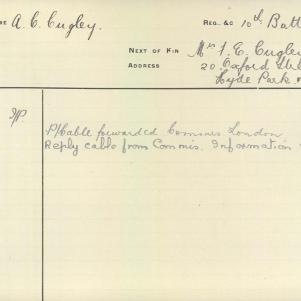 A. C. Cugley.
REG. &C 10th Batt
NEXT OF KIN Mrs F. E. Cugley
ADDRESS 20 Oxford
Hyde Park
P/Cable forwarded Commis London
Reply cable from Commis. Information